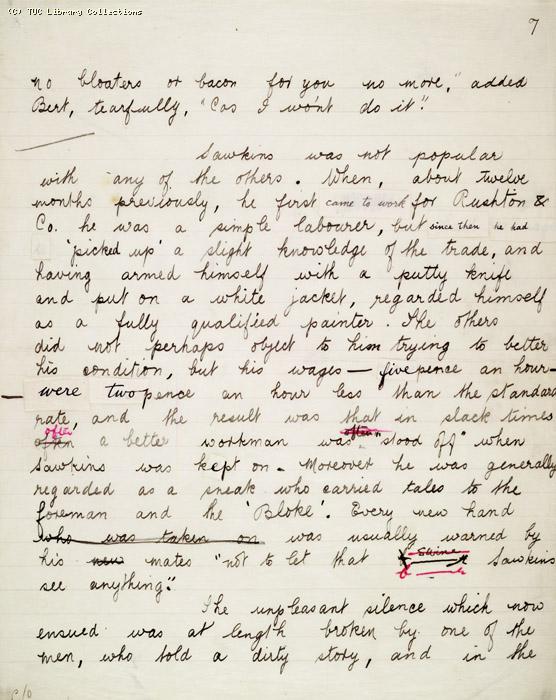 (C) TUC Library Collections
7
no bloaters or bacon for you no more," added
Bert, tearfully, "Cos I won't do it".
Sawkins was not popular
with any of the others. When, about twelve
months previously, he first came to work for Rushton &
Co. he was a simple labourer, but since then he had
'picked up' a slight knowledge of the trade, and
having armed himself with a putty knife
and put on a white jacket, regarded himself
as a fully qualified painter. The others
did not perhaps object to him trying to better
his condition, but his wages — fivepence an hour —
were twopence an hour less than the standard
rate, and the result was that in slack times
often
often a better workman was often "stood off" when
Sawkins was kept on. Moreover he was generally
regarded as a sneak who carried tales to the
foreman and the 'Bloke'. Every new hand
who was taken on was usually warned by
his new mates "not to let that b——r Sawkins
see anything".
The unpleasant silence which now
ensued was at length broken by one of the
men, who told a dirty story, and in the